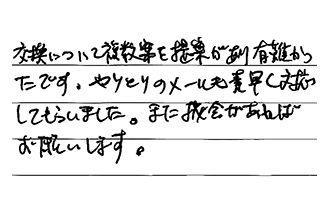 交換について複数案を提案があり有難かっ
たです。やりとりのメールも素早く対応
してもらいました。また機会があれば
お願いします。